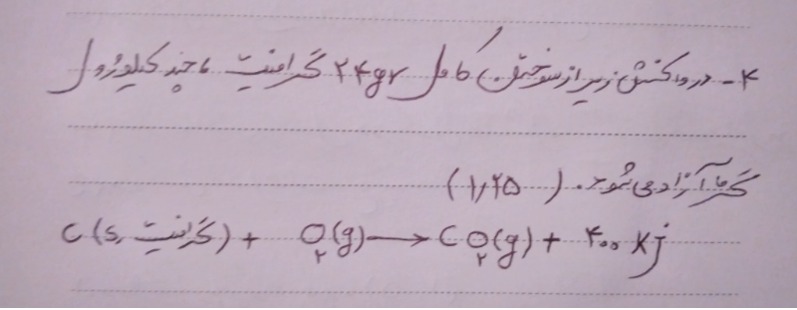 ۴- در واکنش زیر از سوختن کامل ۲۴gr گرافیت، چند کیلوژول
گرما آزاد می شود. ( ۱٫۲۵ )
C (s, گرافیت) + O₂(g) → CO₂(g) + ۴۰۰ kj